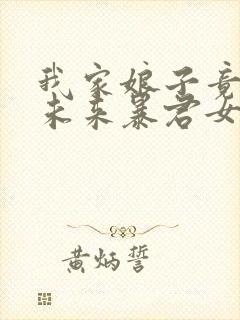 我家娘子竟
未来暴君女
黄炳誓